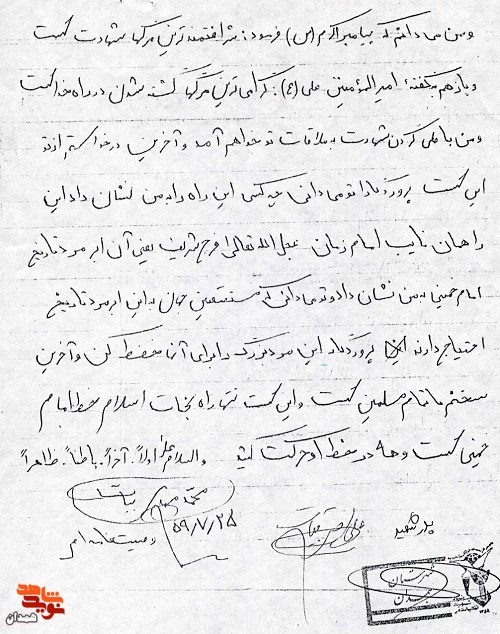 و من می دانم که پیامبر اکرم (ص) فرمود: شرافتمندترین مرگها شهادت است
و بازهم بگفتهٔ امیرالمؤمنین علی (ع): گرامی ترین مرگها کشته شدن در راه خداست
و من با طی کردن شهادت به ملاقات تو خواهم آمد و آخرین درخواستم از تو
این است پروردگارا تو می دانی چه کسی این راه را به من نشان داد این
را همان نایب امام زمان عجل الله تعالی فرج شریف یعنی آن ابر مرد تاریخ
امام خمینی به من نشان داد و تو می دانی که مستضعفین جهان به این ابر مرد تاریخ
احتیاج دارند پروردگارا این مرد بزرگ را برای آنها حفظ کن و آخرین
سخنم با تمام مسلمین است و این است تنها راه نجات اسلام خط امام
خمینی است و همه در خط او حرکت کنید والسلام علی اولاً. آخراً. باطناً. ظاهراً
محمد
۵۹/۷/۲۵
وصیت نامه ام
پدر شهید
علی
شهرستان
همدان
نوید شاهد
همدان